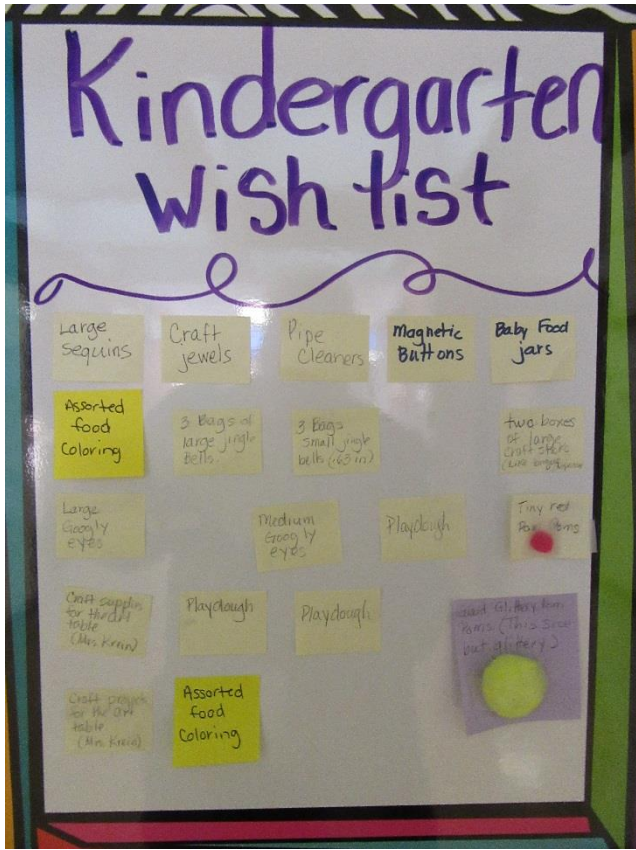 Kindergarten
Wish list
Large
sequins
Craft
jewels
Pipe
Cleaners
Magnetic
Buttons
Baby Food
jars
Assorted
food
Coloring
3 Bags of
large jingle
bells.
3 Bags
Small jingle
bells (.63 in)
two boxes
of large
craft sticks
Large
Googly
eyes
Medium
Googly
eyes
Playdough
Tiny red
Craft supplies
for the art
table
(Mrs. Krein)
Playdough
Playdough
Glittery Pom
Poms (This size
but glittery)
Craft
for the art
table
(Mrs. Krein)
Assorted
food
Coloring